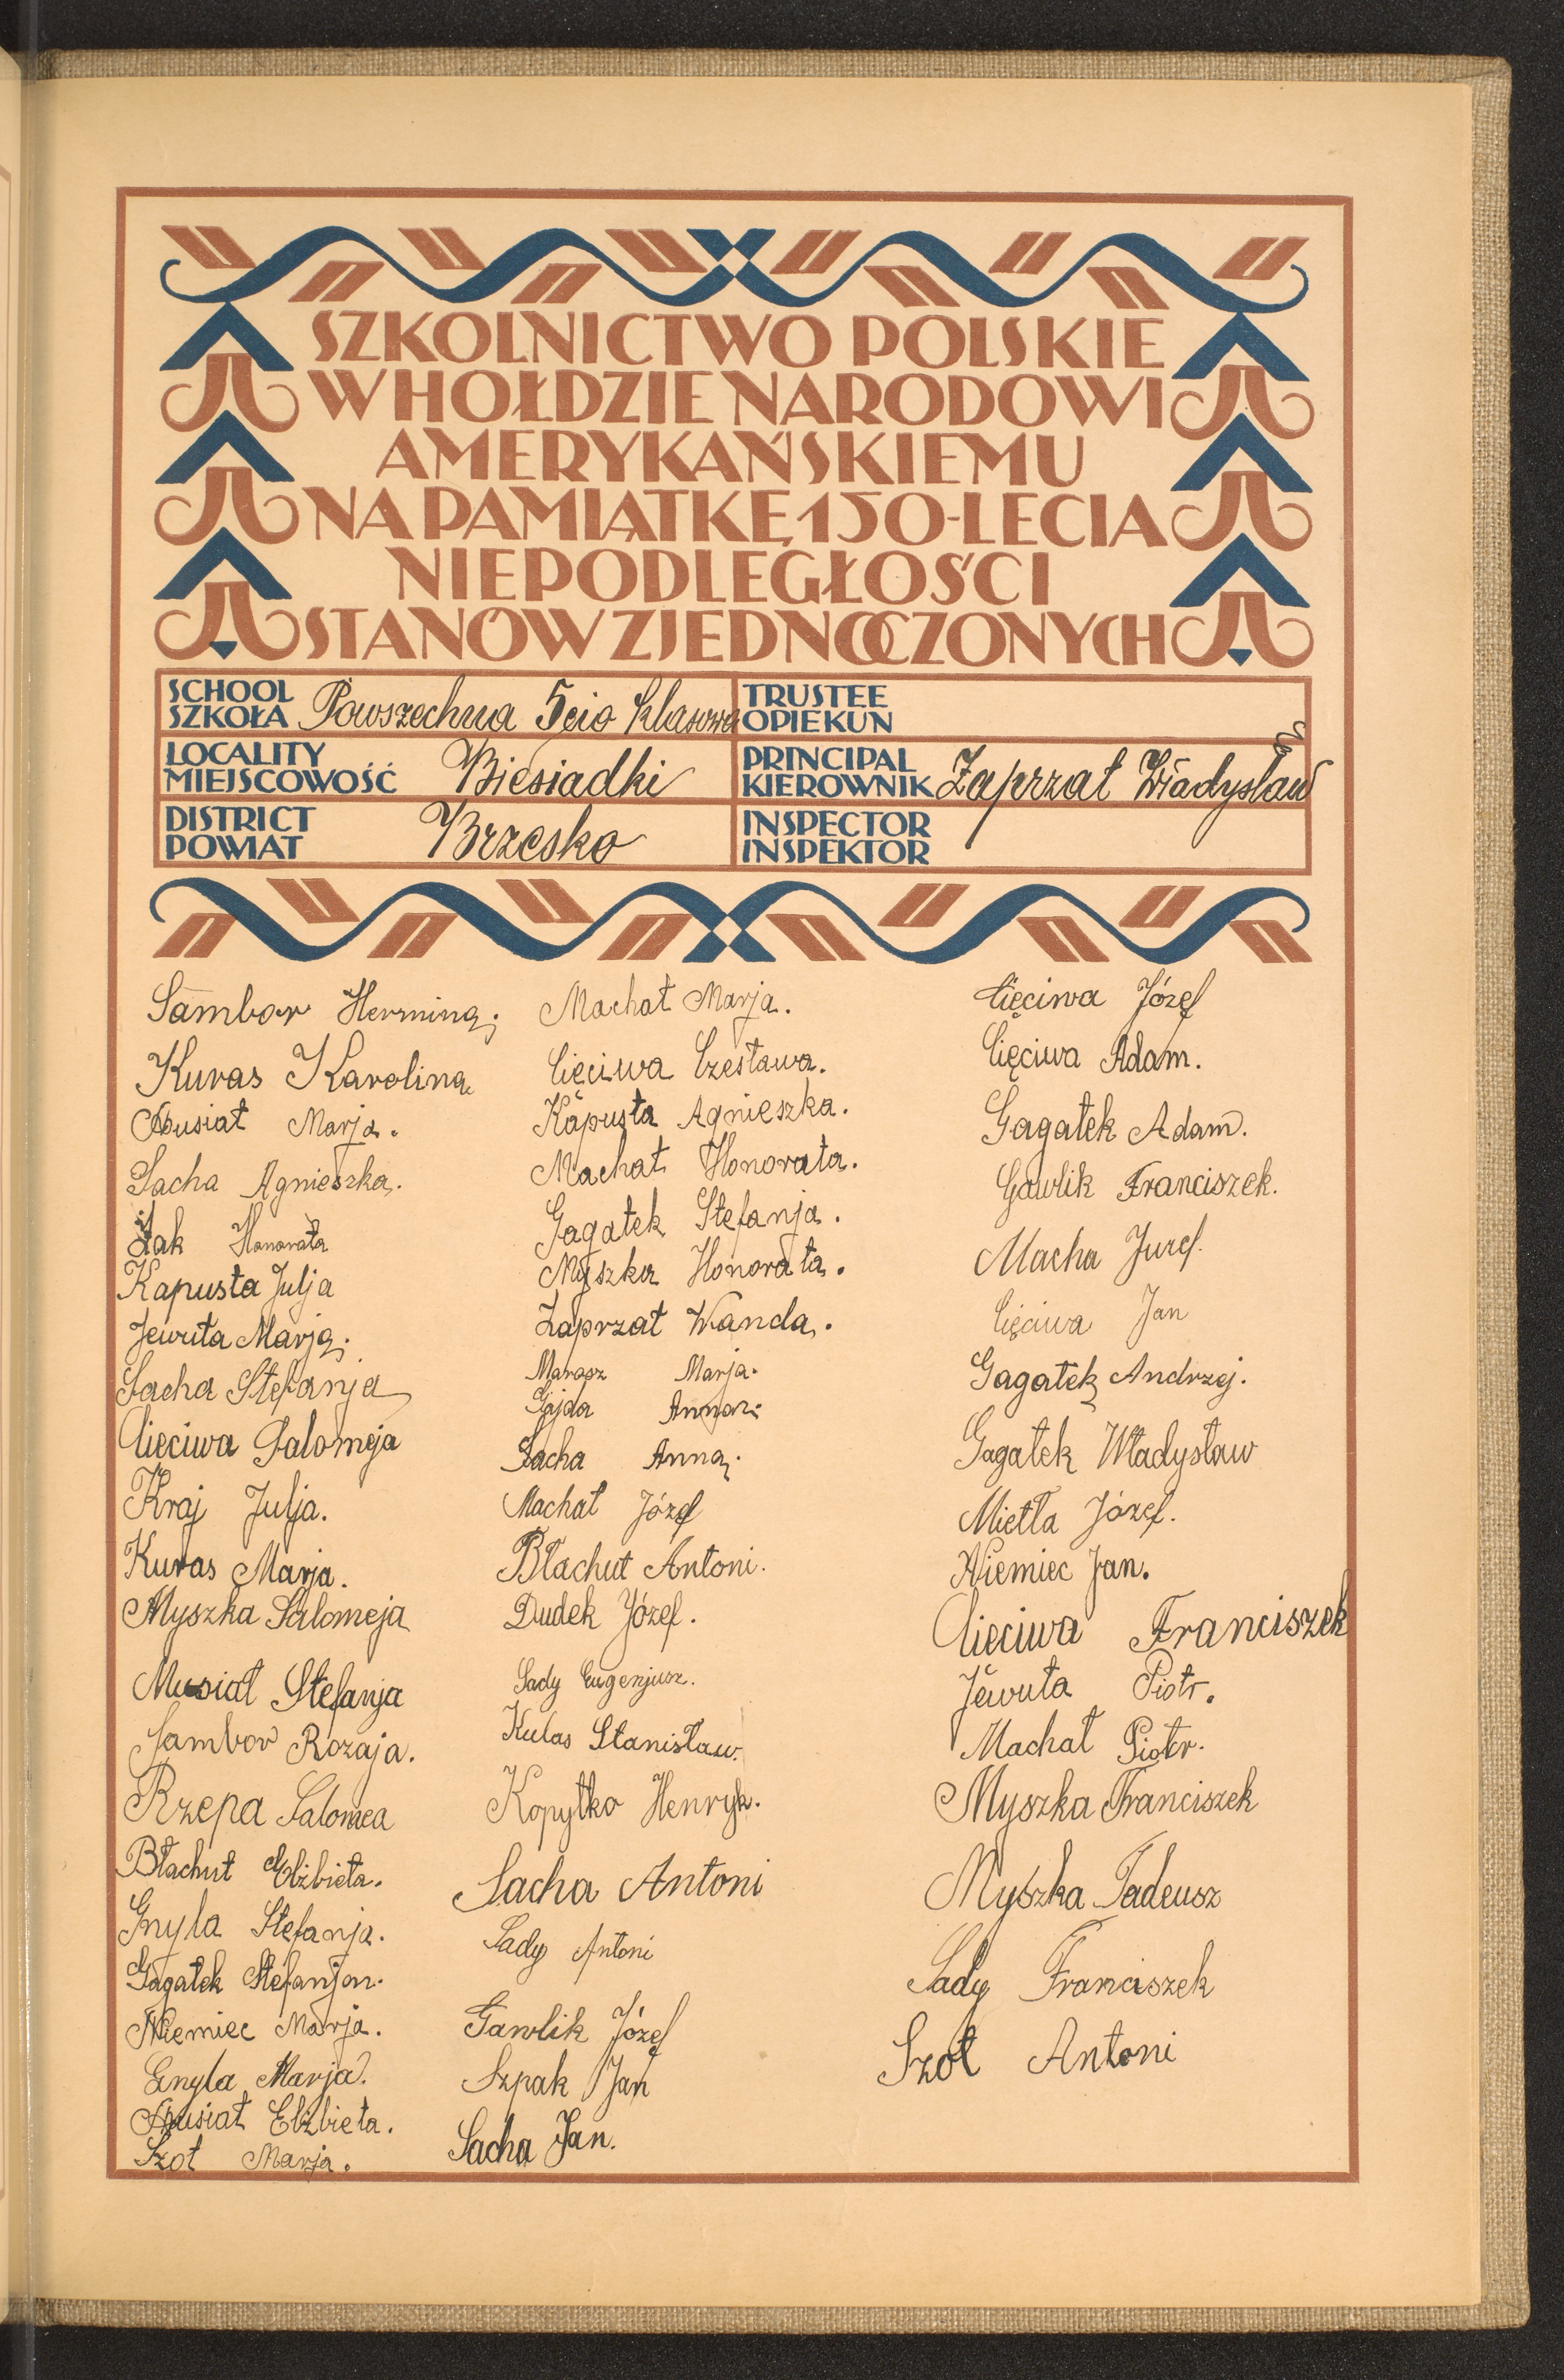 SZKOLNICTWO POLSKIE
W HOŁDZIE NARODOWI
AMERYKAŃSKIEMU
NA PAMIĄTKĘ 150-LECIA
NIEPODLEGŁOŚCI
STANÓW ZJEDNOCZONYCH
SCHOOL
SZKOŁA Powszechna 5cio klasowa
LOCALITY
MIEJSCOWOŚĆ Biesiadki
DISTRICT
POWIAT Brzesko
TRUSTEE
OPIEKUN
PRINCIPAL
KIEROWNIK Zaprzał Władysław
INSPECTOR
INSPEKTOR
Sambor Hermina
Kuras Karolina
Musiał Marja.
Sacha Agnieszka.
Żak Honorata
Kapusta Julja
Jewuta Marja
Sacha Stefanja
Cięciwa Salomeja
Kraj Julja.
Kuras Marja.
Myszka Salomeja
Musiał Stefanja
Sambor Rozaja.
Rzepa Salomea
Błachut Elżbieta.
Gnyla Stefanja.
Gagatek Stefanja.
Niemiec Marja.
Gnyla Marja.
Musiał Elżbieta.
Szot Marja.
Machał Marja.
Cięciwa Czesława.
Kapusta Agnieszka.
Machał Honorata.
Gagatek Stefanja.
Myszka Honorata.
Zaprzał Wanda.
Marasz Marja.
Gajda Anna
Sacha Anna
Machał Józef
Błachut Antoni.
Dudek Józef.
Sady Eugenjusz.
Kulas Stanisław.
Kopytko Henryk.
Sacha Antoni
Sady Antoni
Gawlik Józef
Szpak Jan
Sacha Jan.
Cięciwa Józef
Cięciwa Adam.
Gagatek Adam.
Gawlik Franciszek.
Macha
Cięciwa Jan
Gagatek Andrzej.
Gagatek Władysław
Mietła Józef.
Niemiec Jan.
Cięciwa Franciszek
Jewuta Piotr.
Machał Piotr.
Myszka Franciszek
Myszka Tadeusz
Sady Franciszek
Szot Antoni